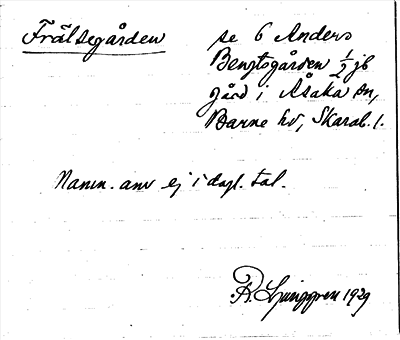 Frälsegården
se 6 Anders
Bengtsgården 1/2 jb
gård i Åsaka sn,
Barne hd, Skarab. l.
Namn. anv ej i dagl. tal.
R. Ljunggren 1929